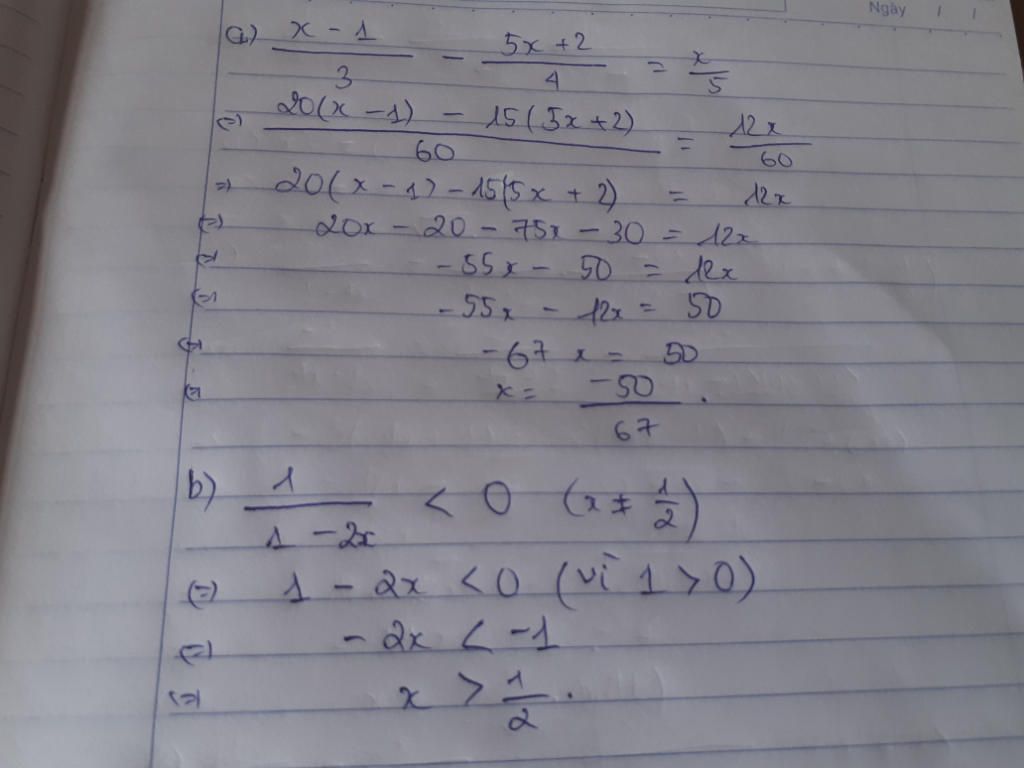 Ngày / /
a) \frac{x - 1}{3} - \frac{5x + 2}{4} = \frac{x}{5}
(=) \frac{20(x - 1) - 15(5x + 2)}{60} = \frac{12x}{60}
=) 20(x - 1) - 15(5x + 2) = 12x
(=) 20x - 20 - 75x - 30 = 12x
(=) -55x - 50 = 12x
(=) -55x - 12x = 50
(=) -67x = 50
(=) x = \frac{-50}{67}.
b) \frac{1}{1 - 2x} < 0 (x ≠ \frac{1}{2})
(=) 1 - 2x < 0 (vì 1 > 0)
(=) -2x < -1
(=) x > \frac{1}{2}.